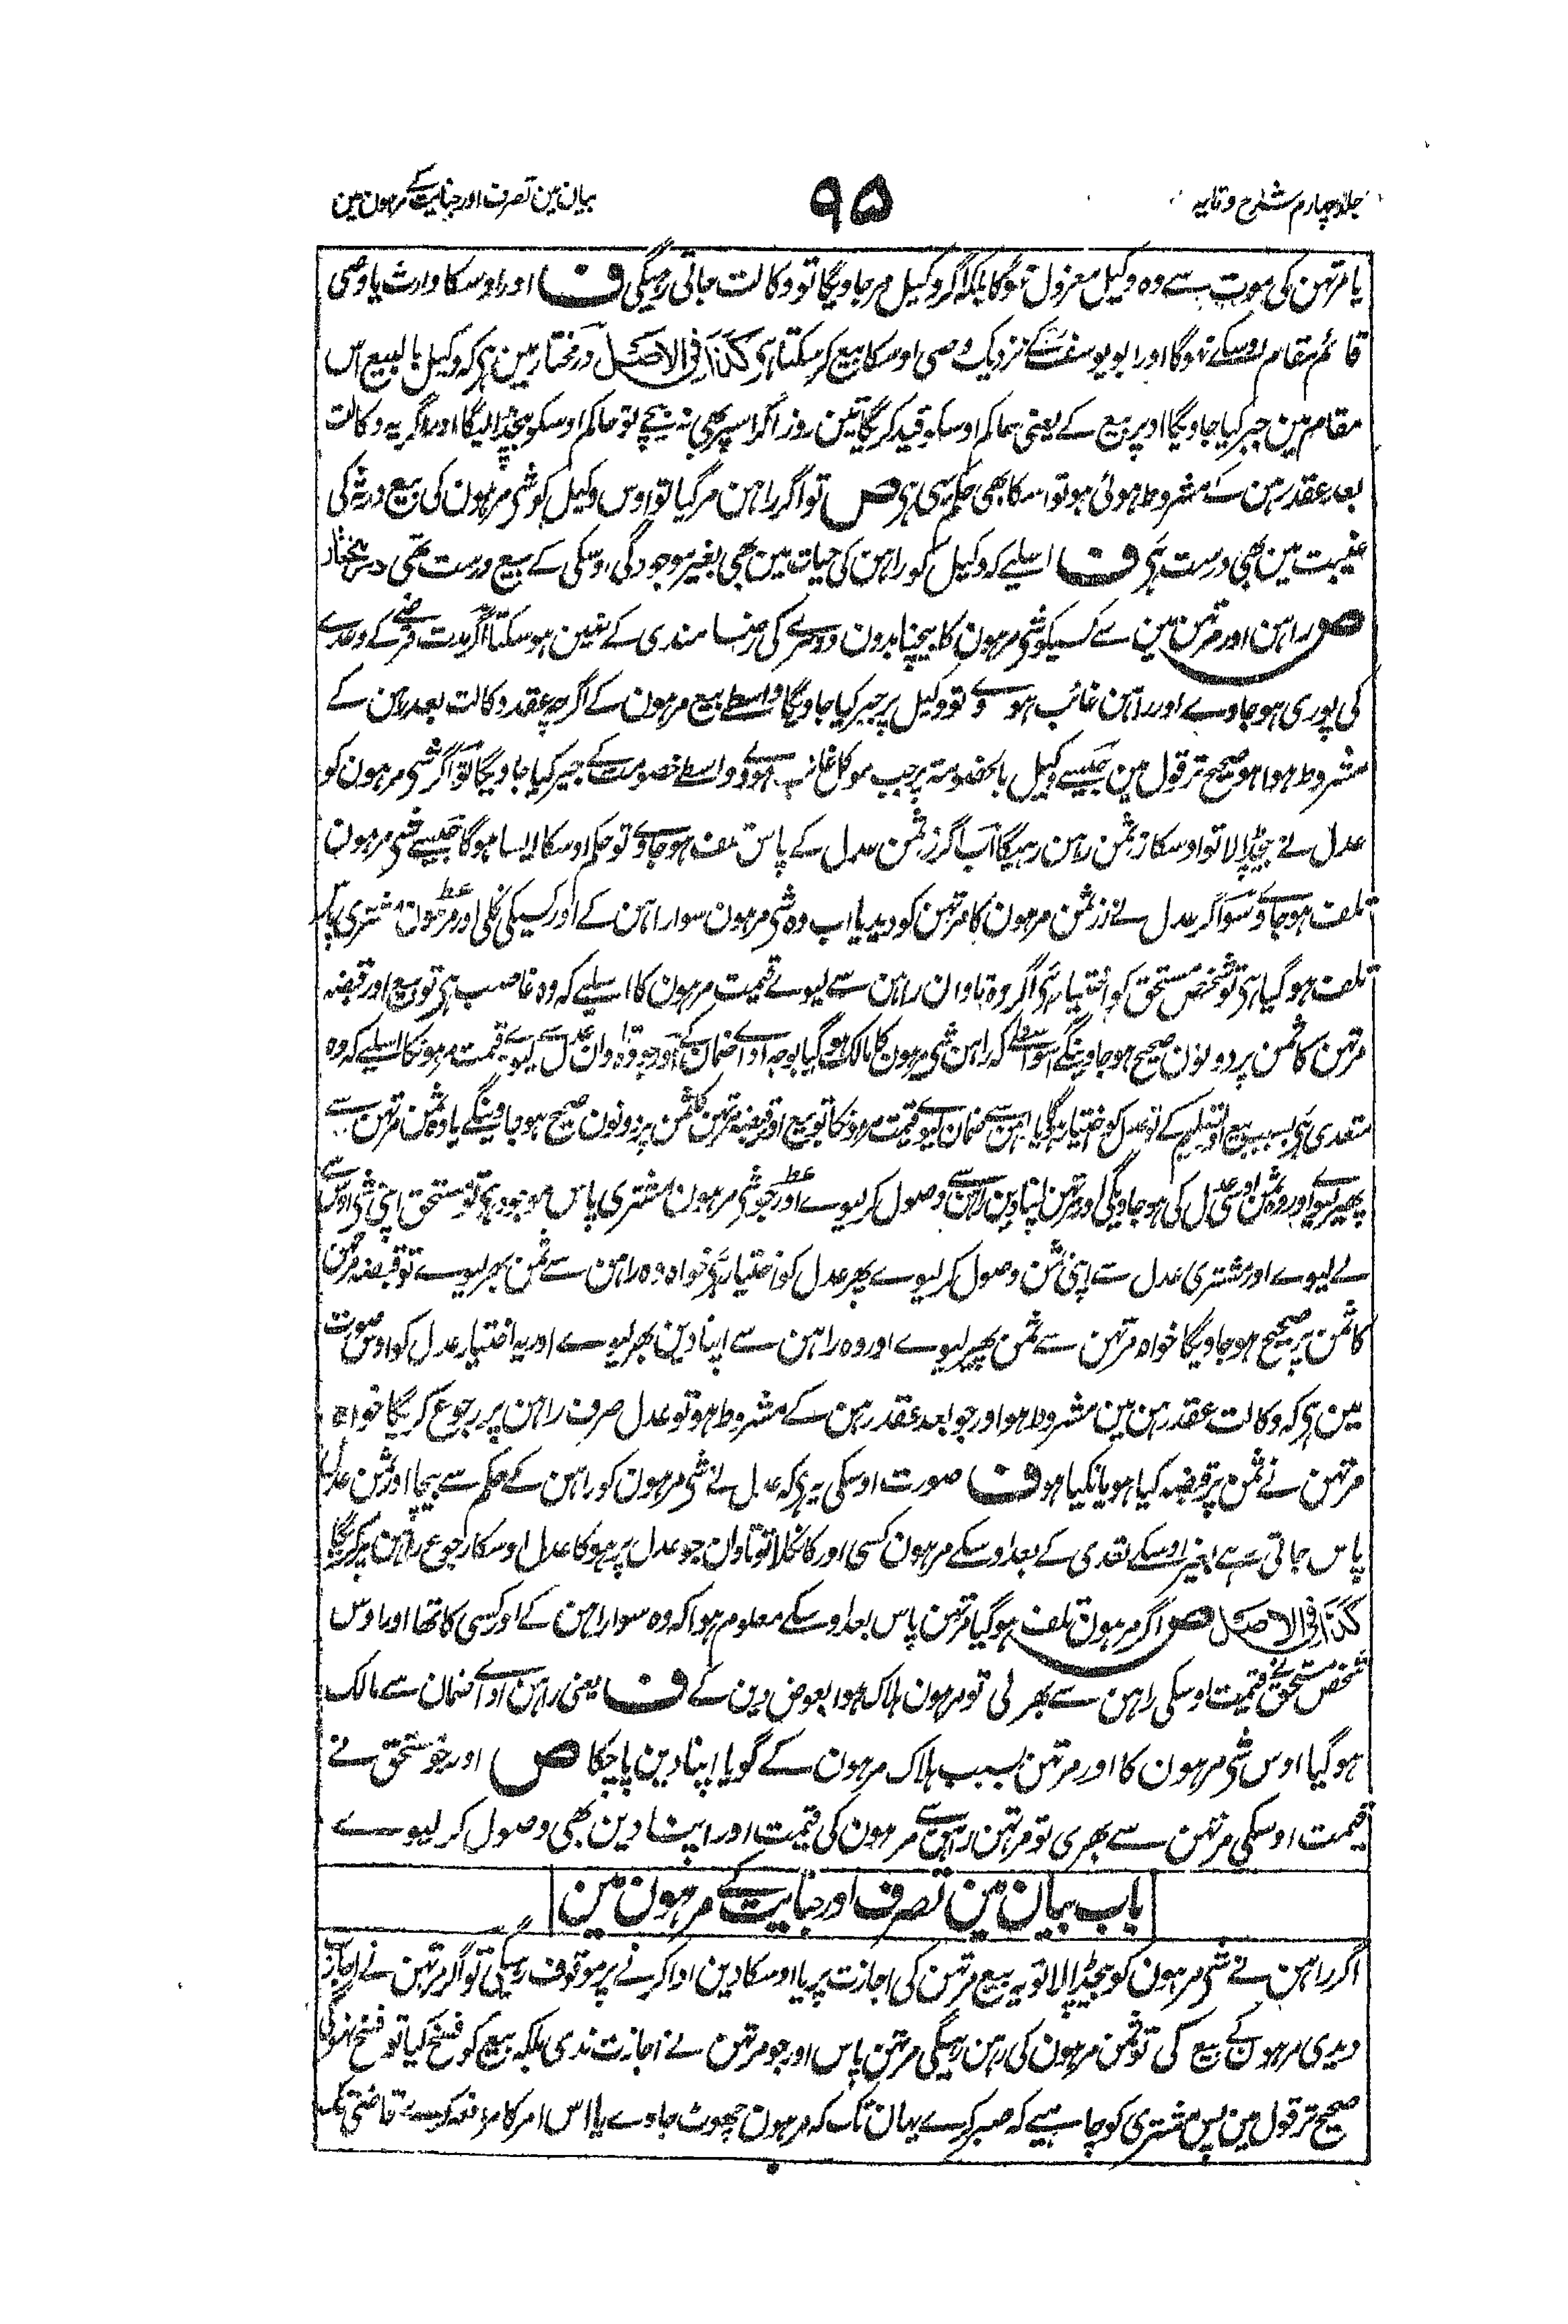 جلد چہارم شرح وقایہ
۹۵
بیان مین تصرف اور جنایت کے مرہون مین
یا مرتہن کی موت سے وہ وکیل معزول نہوگا بلکہ اگر وکیل مر جاویگا تو وکالت جاتی رہیگی ف اور اوسکا وارث یا وصی
قائم مقام اوسکے نہوگا اور ابو یوسف کے نزدیک وصی اوسکا بیع کر سکتا ہی کذا فی الاصل درمختار مین ہی کہ وکیل بالبیع اس
مقام مین جبر کیا جاویگا اوپر بیع کے یعنی حاکم اوسکو قید کریگا تین روز اگر اسپر بھی نہ بیچے تو حاکم اوسکو بیچڈالیگا اور اگر یہ وکالت
بعد عقد رہن کے مشروط ہوئی ہو تو اسکا بھی حکم یہی ہی ص تو اگر راہن مر گیا تو اوس وکیل کو شی مرہون کی بیع ورثہ کی
غیبت مین بھی درست ہی ف اسلیے کہ وکیل کو راہن کی حیات مین بھی بغیر موجودگی اوسکی کے بیع درست تھی درمختار
ص راہن اور مرتہن مین سے کسیکو شی مرہون کا بیچنا بدون دوسرے کی رضا مندی کے نہین ہو سکتا اگر مدت قرض کے وعدے
کی پوری ہو جاوے اور راہن غائب ہووے تو وکیل پر جبر کیا جاویگا واسطے بیع مرہون کے اگرچہ عقد وکالت بعد رہن کے
مشروط ہوا ہو صحیح تر قول مین جیسے وکیل بالخصومۃ پر جب موکل غائب ہووے واسطے خصومت کے جبر کیا جاویگا تو اگر شی مرہون کو
عدل نے بیچڈالا تو اوسکا زر ثمن رہن رہیگا اب اگر زر ثمن عدل کے پاس تلف ہو جاوے تو حکم اوسکا ایسا ہوگا جیسے شی مرہون
تلف ہو جاوے سو اگر عدل نے زر ثمن مرہون کا مرتہن کو دیدیا اب وہ شی مرہون سوا راہن کے اور کسیکی نکلی اور مرہون مشتری پاس
تلف ہو گیا ہی تو شخص مستحق کو اختیار ہی اگر وہ تاوان راہن سے لیوے قیمت مرہون کا اسلیے کہ وہ غاصب ہی تو بیع اور قبضہ
مرتہن کا ثمن پر دونون صحیح ہو جاوینگے اسواسطے کہ راہن شی مرہون کا مالک ہو گیا بوجہ اداے ضمان کے اور جو تاوان عدل سے لیوے قیمت مرہونکا اسلیے کہ وہ
متعدی ہی بسبب بیع اور تسلیم کے تو عدل کو اختیار ہی یا راہن سے ضمان لیوے قیمت مرہونکا تو بیع اور قبضہ مرتہن کا ثمن پر دونون صحیح ہو جاوینگے یا وہ ثمن مرتہن سے
پھیر لیوے اور وہ ثمن اوسی عدل کی ہو جاویگی اور مرتہن اپنا دین راہن سے وصول کر لیوے اور جو شی مرہون مشتری پاس موجود ہی تو مستحق اپنی شی اوس سے
لے لیوے اور مشتری عدل سے اپنی ثمن وصول کر لیوے پھر عدل کو اختیار ہی خواہ وہ راہن سے ثمن بھر لیوے تو قبضہ مرتہن
کا ثمن پر صحیح ہو جاویگا خواہ مرتہن سے ثمن پھیر لیوے اور وہ راہن سے اپنا دین بھر لیوے اور یہ اختیار عدل کو اوس صورت
مین ہی کہ وکالت عقد رہن مین مشروط ہو اور جو بعد عقد رہن کے مشروط ہو تو عدل صرف راہن پر رجوع کریگا خواہ
مرتہن نے ثمن پر قبضہ کیا ہو یا نکیا ہو ف صورت اوسکی یہ ہی کہ عدل نے شی مرہون کو راہن کے حکم سے بیچا اور ثمن عدل کے
پاس جاتی رہے بغیر اوسکے تعدی کے بعد اوسکے مرہون کسی اور کا نکلا تو تاوان جو عدل پر ہوگا عدل اوسکا رجوع راہن پر کریگا
کذا فی الاصل ص اگر مرہون تلف ہو گیا مرتہن پاس بعد اوسکے معلوم ہوا کہ وہ سوا راہن کے اور کسی کا تھا اور اوس
شخص مستحق نے قیمت اوسکی راہن سے بھر لی تو مرہون ہلاک ہوا بعوض دین کے ف یعنی راہن اداے ضمان سے مالک
ہو گیا اوس شی مرہون کا اور مرتہن بسبب ہلاک مرہون کے گویا اپنا دین پاچکا ص اور جو مستحق نے
قیمت اوسکی مرتہن سے بھری تو مرتہن راہن سے مرہون کی قیمت اور اپنا دین بھی وصول کر لیوے
باب بیان مین تصرف اور جنایت کے مرہون مین
اگر راہن نے شی مرہون کو بیچڈالا تو یہ بیع مرتہن کی اجازت پر یا اوسکا دین ادا کرنے پر موقوف رہیگی تو اگر مرتہن نے اجازت
دیدی مرہون کے بیع کی تو ثمن مرہون کی رہن رہیگی مرتہن پاس اور جو مرتہن نے اجازت ندی بلکہ بیع کو فسخ کیا تو فسخ نہوگی
صحیح تر قول مین پس مشتری کو چاہیے کہ صبر کرے یہان تک کہ مرہون چھوٹ جاوے یا اس امر کا مرافعہ کرے قاضی تک